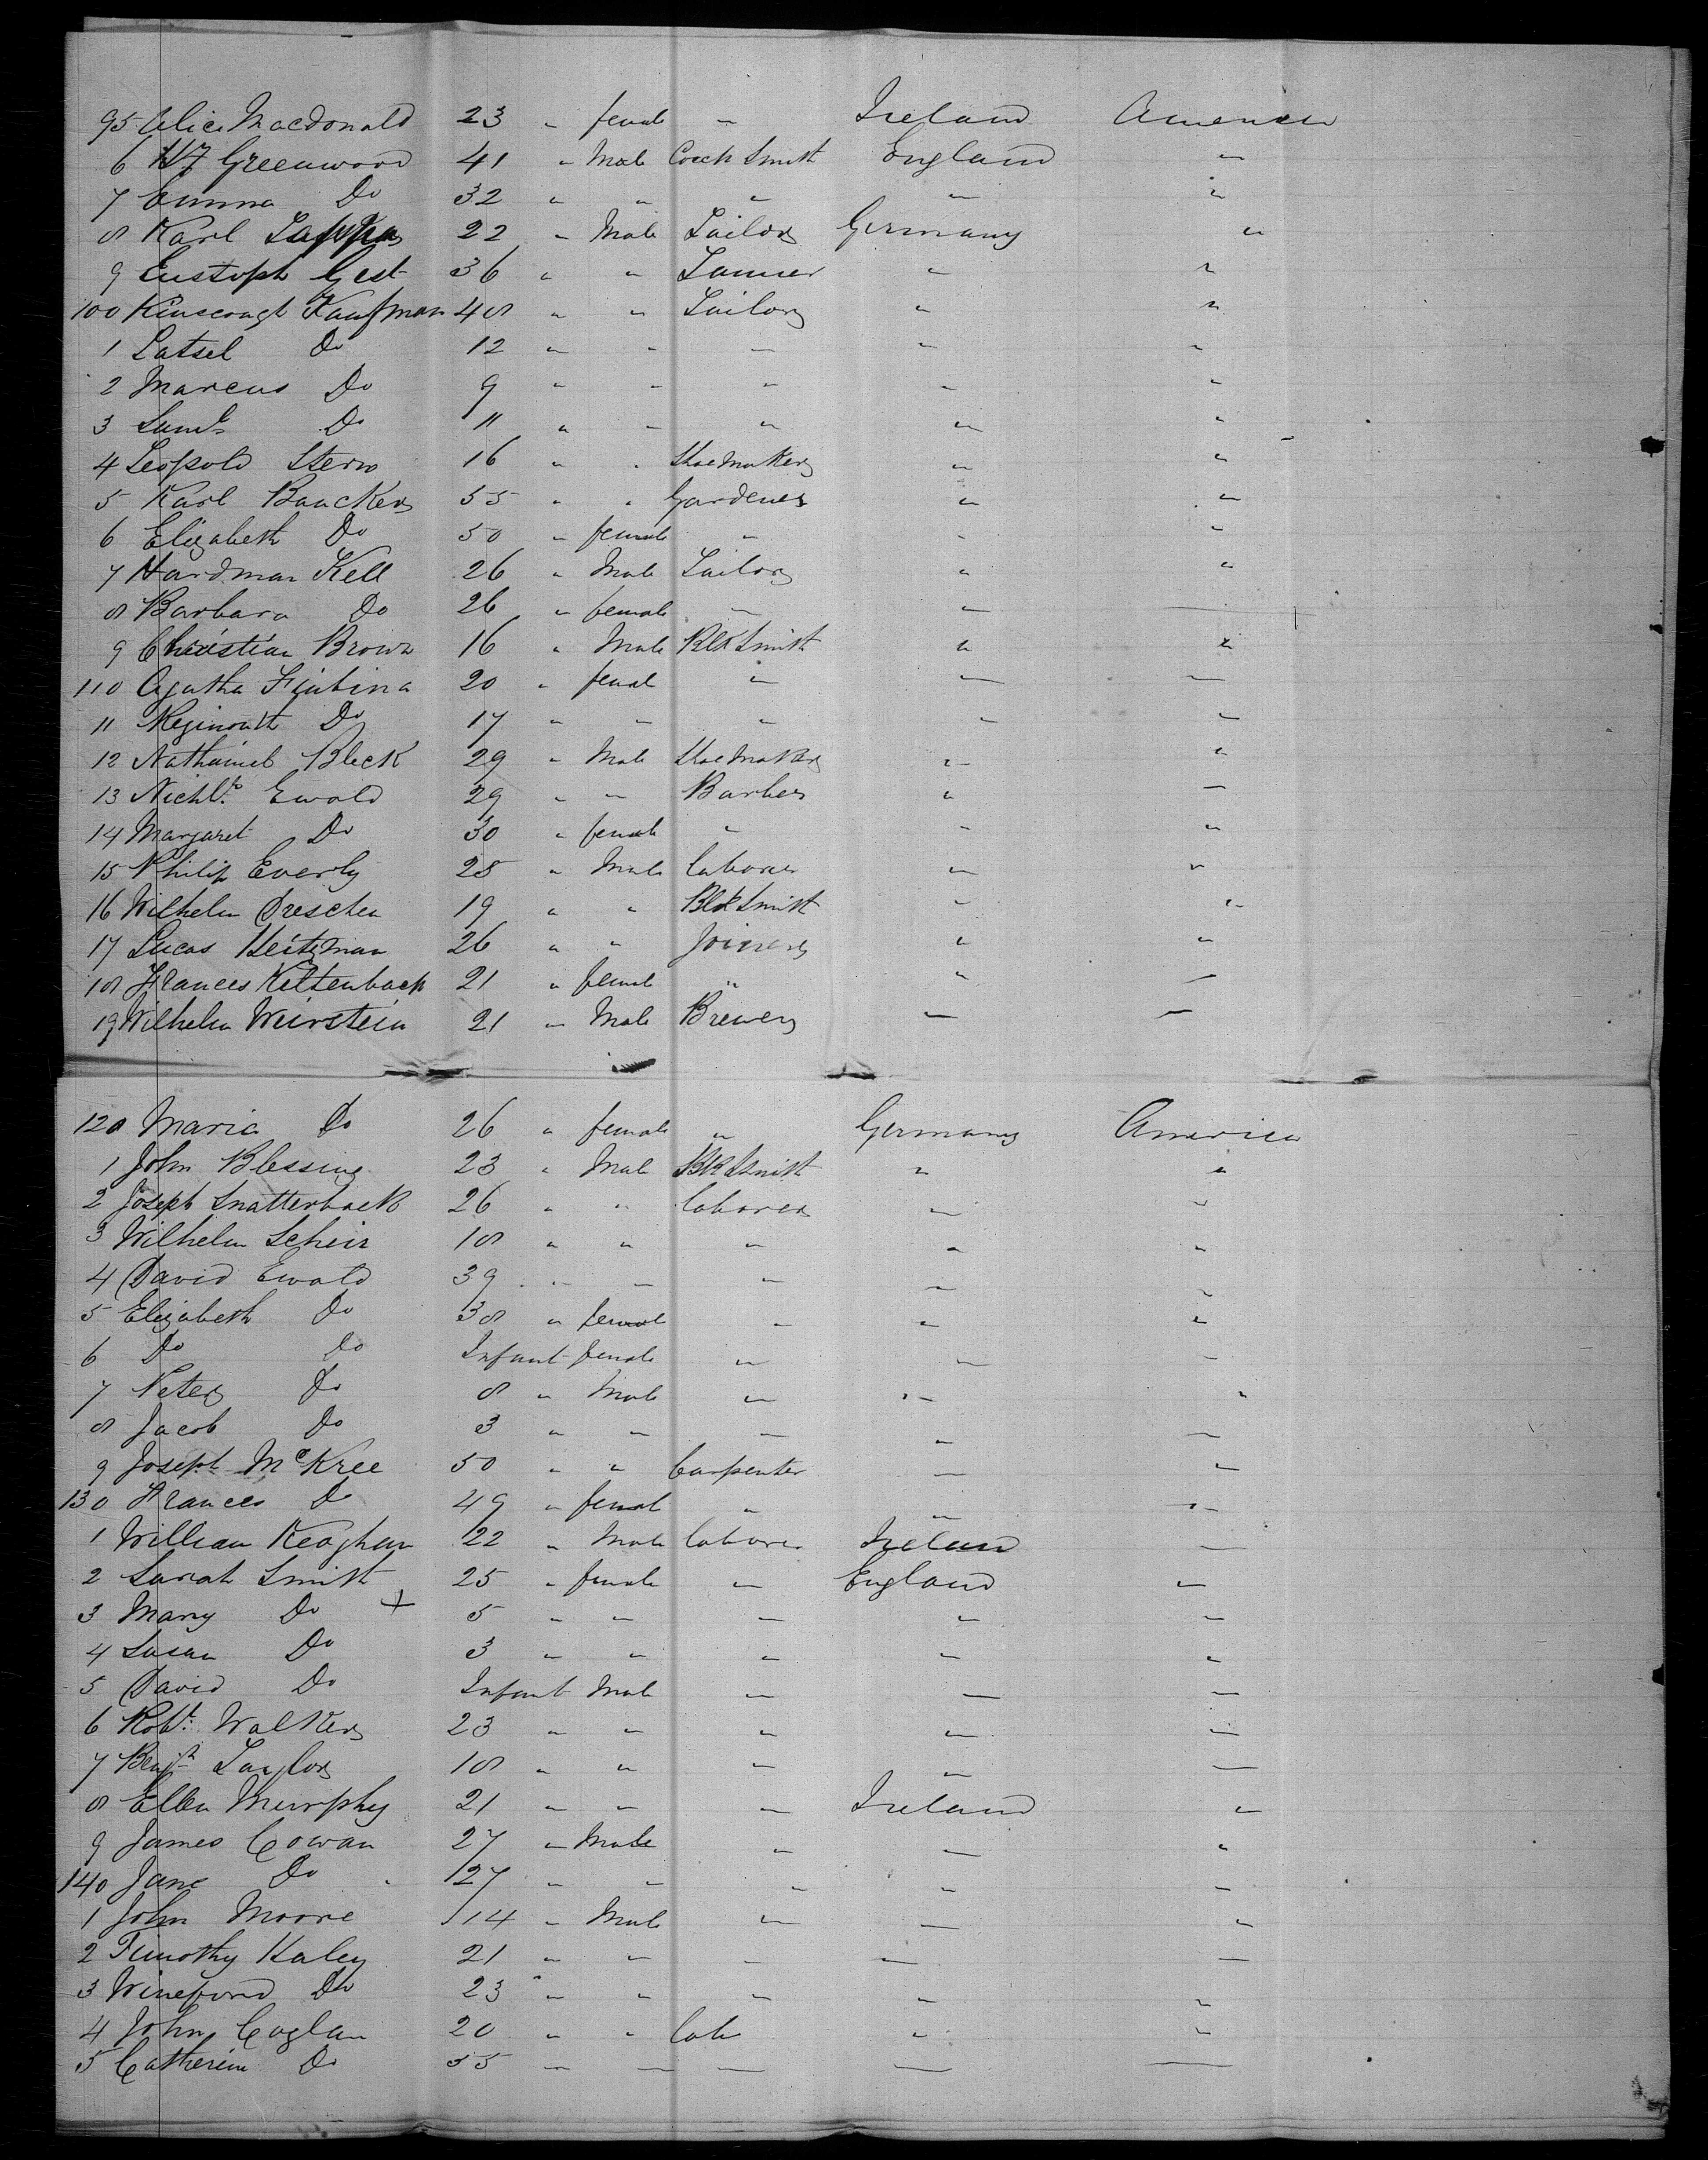 95 Alice Macdonald 23 " female " Ireland America
6 W J Greenwood 41 " Male Coach Smith England "
7 Emma Do 32 " " " " "
8 Karl 22 " Male Tailor Germany "
9 Gest 36 " " Tanner " "
100 Kaufman 48 " " Tailor " "
1 Latsel Do 12 " " " " "
2 Marcus Do 9 " " " " "
3 Saml Do 11 " " " " "
4 Leopold Stern 16 " " Shoemaker " "
5 Karl Baucker 55 " " Gardener " "
6 Elizabeth Do 50 " female " " "
7 Hardman Kell 26 " Male Tailor " "
8 Barbara Do 26 " female " " "
9 Christian Brown 16 " Male Blk Smith " "
110 Agatha 20 " femal " " "
11 Do 17 " " " " "
12 Nathaniel Bleck 29 " Male Shoemaker " "
13 Ewald 29 " " Barber " "
14 Margaret Do 30 " female " " "
15 Philip Everly 25 " Male laborer " "
16 Wilhelm Drescher 19 " " Blk Smith " "
17 Lucas Heitzman 26 " " Joiner " "
18 Frances Keltenback 21 " female " " "
19 Wilhelm Weirstein 21 " Male Brewer " "
120 Maria Do 26 " female " Germany America
1 John Blessing 23 " Male Blk Smith " "
2 Joseph Snatterback 26 " " laborer " "
3 Wilhelm Schein 18 " " " " "
4 David Ewald 39 " " " " "
5 Elizabeth Do 38 " female " " "
6 Do Do Infant female " " "
7 Peter Do 8 " Male " " "
8 Jacob Do 3 " " " " "
9 Joseph McKree 50 " " Carpenter " "
130 Frances Do 49 " female " " "
1 William Keaghan 22 " Male laborer Ireland "
2 Sarah Smith 25 " female " England "
3 Mary Do + 5 " " " " "
4 Susan Do 3 " " " " "
5 David Do Infant Male " " "
6 Robt. Walker 23 " " " " "
7 Benjn Taylor 18 " " " " "
8 Ellen Murphy 21 " " " Ireland "
9 James Cowan 27 " Male " " "
140 Jane Do 27 " " " " "
1 John Moore 14 " Male " " "
2 Timothy Haley 21 " " " " "
3 Wineford Do 23 " " " " "
4 John Coglan 20 " " lab " "
5 Catherine Do 55 " " " " "